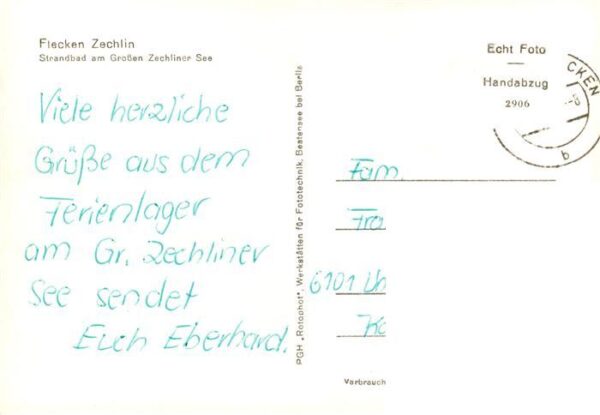 Flecken Zechlin
Strandbad am Großen Zechliner See
Viele herzliche
Grüße aus dem
Ferienlager
am Gr. Zechliner
See sendet
Euch Eberhard.
PGH „Rotophot“, Werkstätten für Fototechnik, Bestensee bei Berlin
Echt Foto
Handabzug
2906
CKEN
b
Fam.
Fra
6101 Un
Ka
Verbrauch